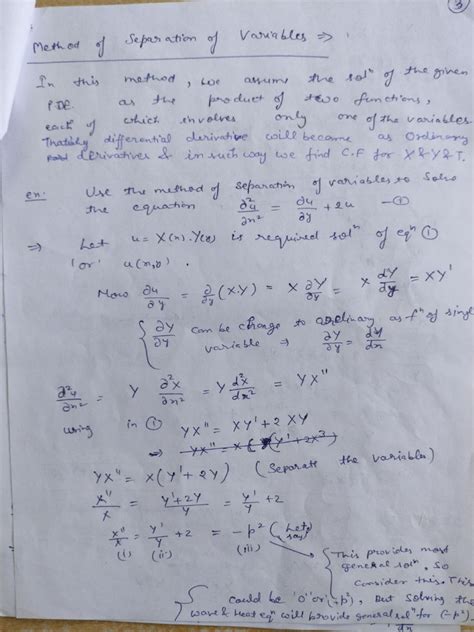 3
Method of Separation of Variables ⇒
In this method, we assume the solⁿ of the given
PDE as the product of two functions,
each of which involves only one of the variables.
differential derivative will became as Ordinary
derivatives & in such way we find C.F for X & Y & T.
en: Use the method of separation of variables to Solve
the equation ∂²u/∂x² = ∂u/∂y + 2u —①
⇒ Let u = X(x).Y(y) is required solⁿ of eqⁿ ①
'or' u(x,y).
Now ∂u/∂y = ∂/∂y (X.Y) = X ∂Y/∂y = X dY/dy = XY'
{ ∂Y/∂y can be change to ordinary as fⁿ of single
variable ⇒ ∂Y/∂y = dY/dx
∂²u/∂x² = Y ∂²X/∂x² = Y d²X/dx² = YX"
using in ① YX" = XY' + 2XY
YX" = X(Y' + 2Y) (Separate the variables)
X"/X = Y'+2Y/Y = Y'/Y + 2
X"/X = Y'/Y + 2 = -p² (Let say)
(i) (ii) (iii)
This provides most
general solⁿ. So
Consider this. This
could be '0' or '(-p²), But Solving the
wave & Heat eqⁿ will provide general solⁿ for (-p²)